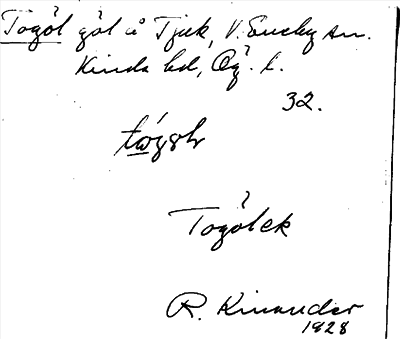 Togöl göl å Tjuk, V. Eneby sn.
Kinda hd, Ög. l.
32.
Togölek
R. Kinander
1928